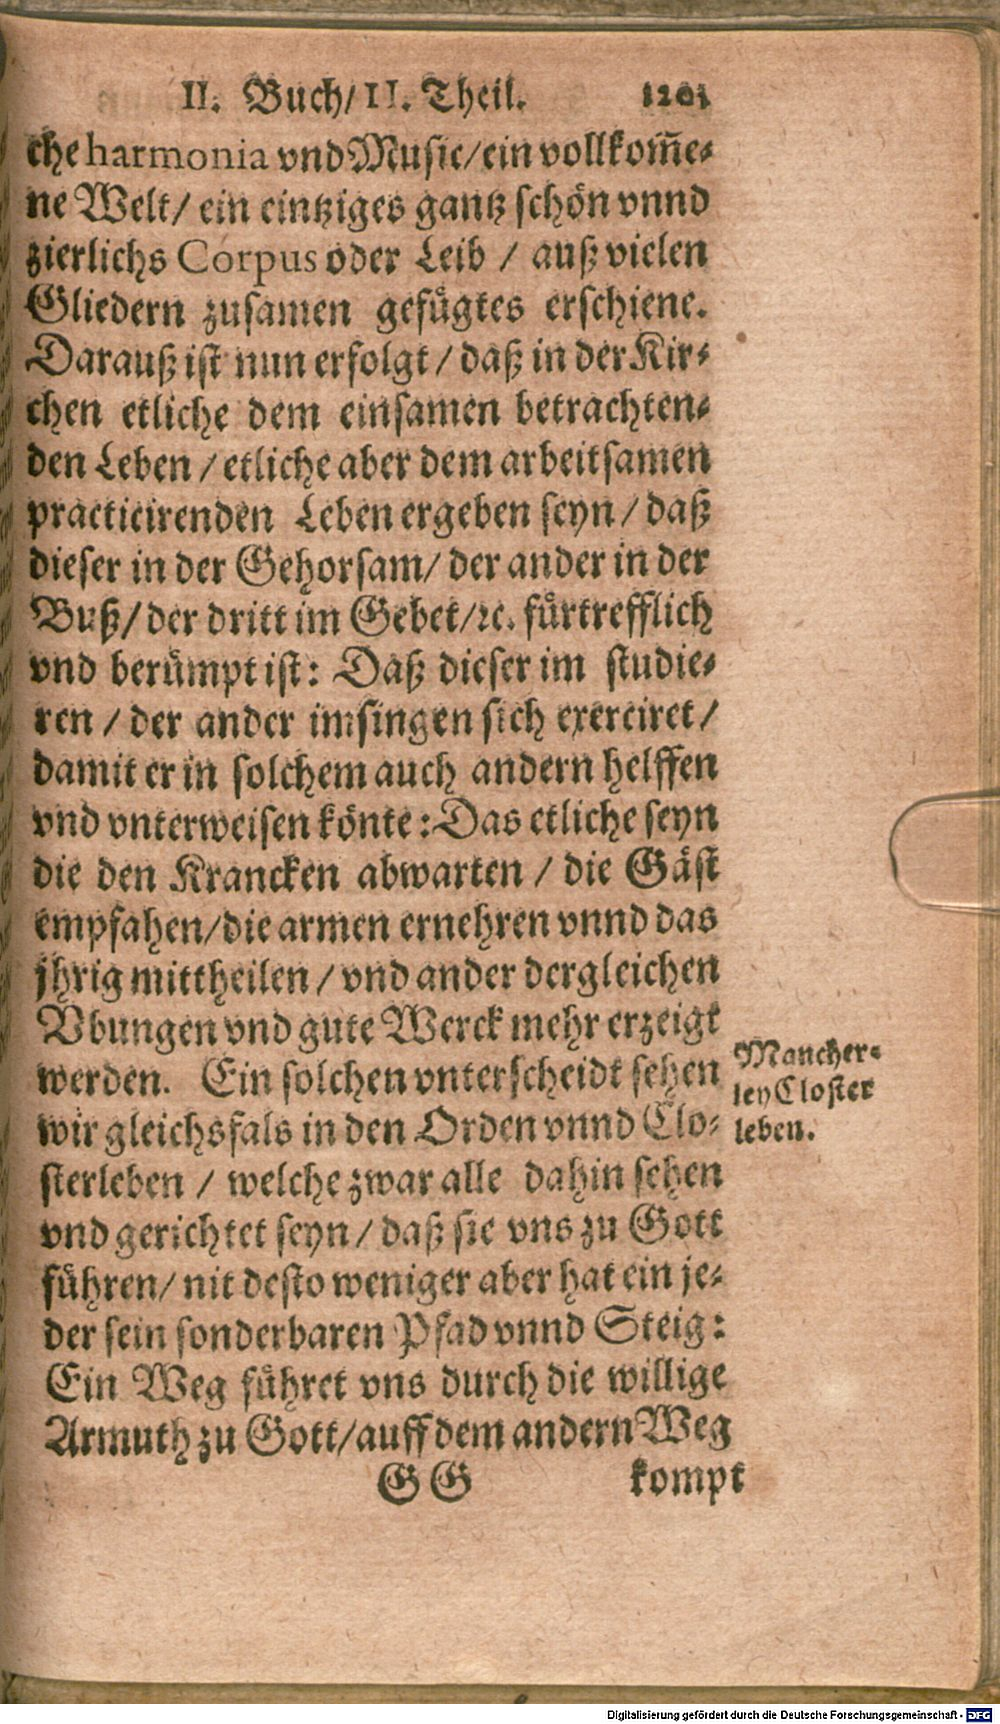 II. Buch/ II. Theil. 1201
che harmonia vnd Music/ein vollkom̃e-
ne Welt/ ein eintziges gantz schön vnnd
zierlichs Corpus oder Leib / auß vielen
Gliedern zusamen gefügtes erschiene.
Darauß ist nun erfolgt / daß in der Kir-
chen etliche dem einsamen betrachten-
den Leben / etliche aber dem arbeitsamen
practicirenden Leben ergeben seyn / daß
dieser in der Gehorsam/ der ander in der
Buß/ der dritt im Gebet/ꝛc. fürtrefflich
vnd berümpt ist: Daß dieser im studie-
ren / der ander im singen sich exerciret/
damit er in solchem auch andern helffen
vnd vnterweisen könte: Das etliche seyn
die den Krancken abwarten / die Gäst
empfahen/die armen ernehren vnnd das
jhrig mittheilen / vnd ander dergleichen
Vbungen vnd gute Werck mehr erzeigt
werden. Ein solchen vnterscheidt sehen
wir gleichsfals in den Orden vnnd Clo-
sterleben / welche zwar alle dahin sehen
vnd gerichtet seyn / daß sie vns zu Gott
führen/ nit desto weniger aber hat ein je-
der sein sonderbaren Pfad vnnd Steig:
Ein Weg führet vns durch die willige
Armuth zu Gott/auff dem andern Weg
GG kompt
Mancher-
ley Closter
leben.
Digitalisierung gefördert durch die Deutsche Forschungsgemeinschaft - DFG